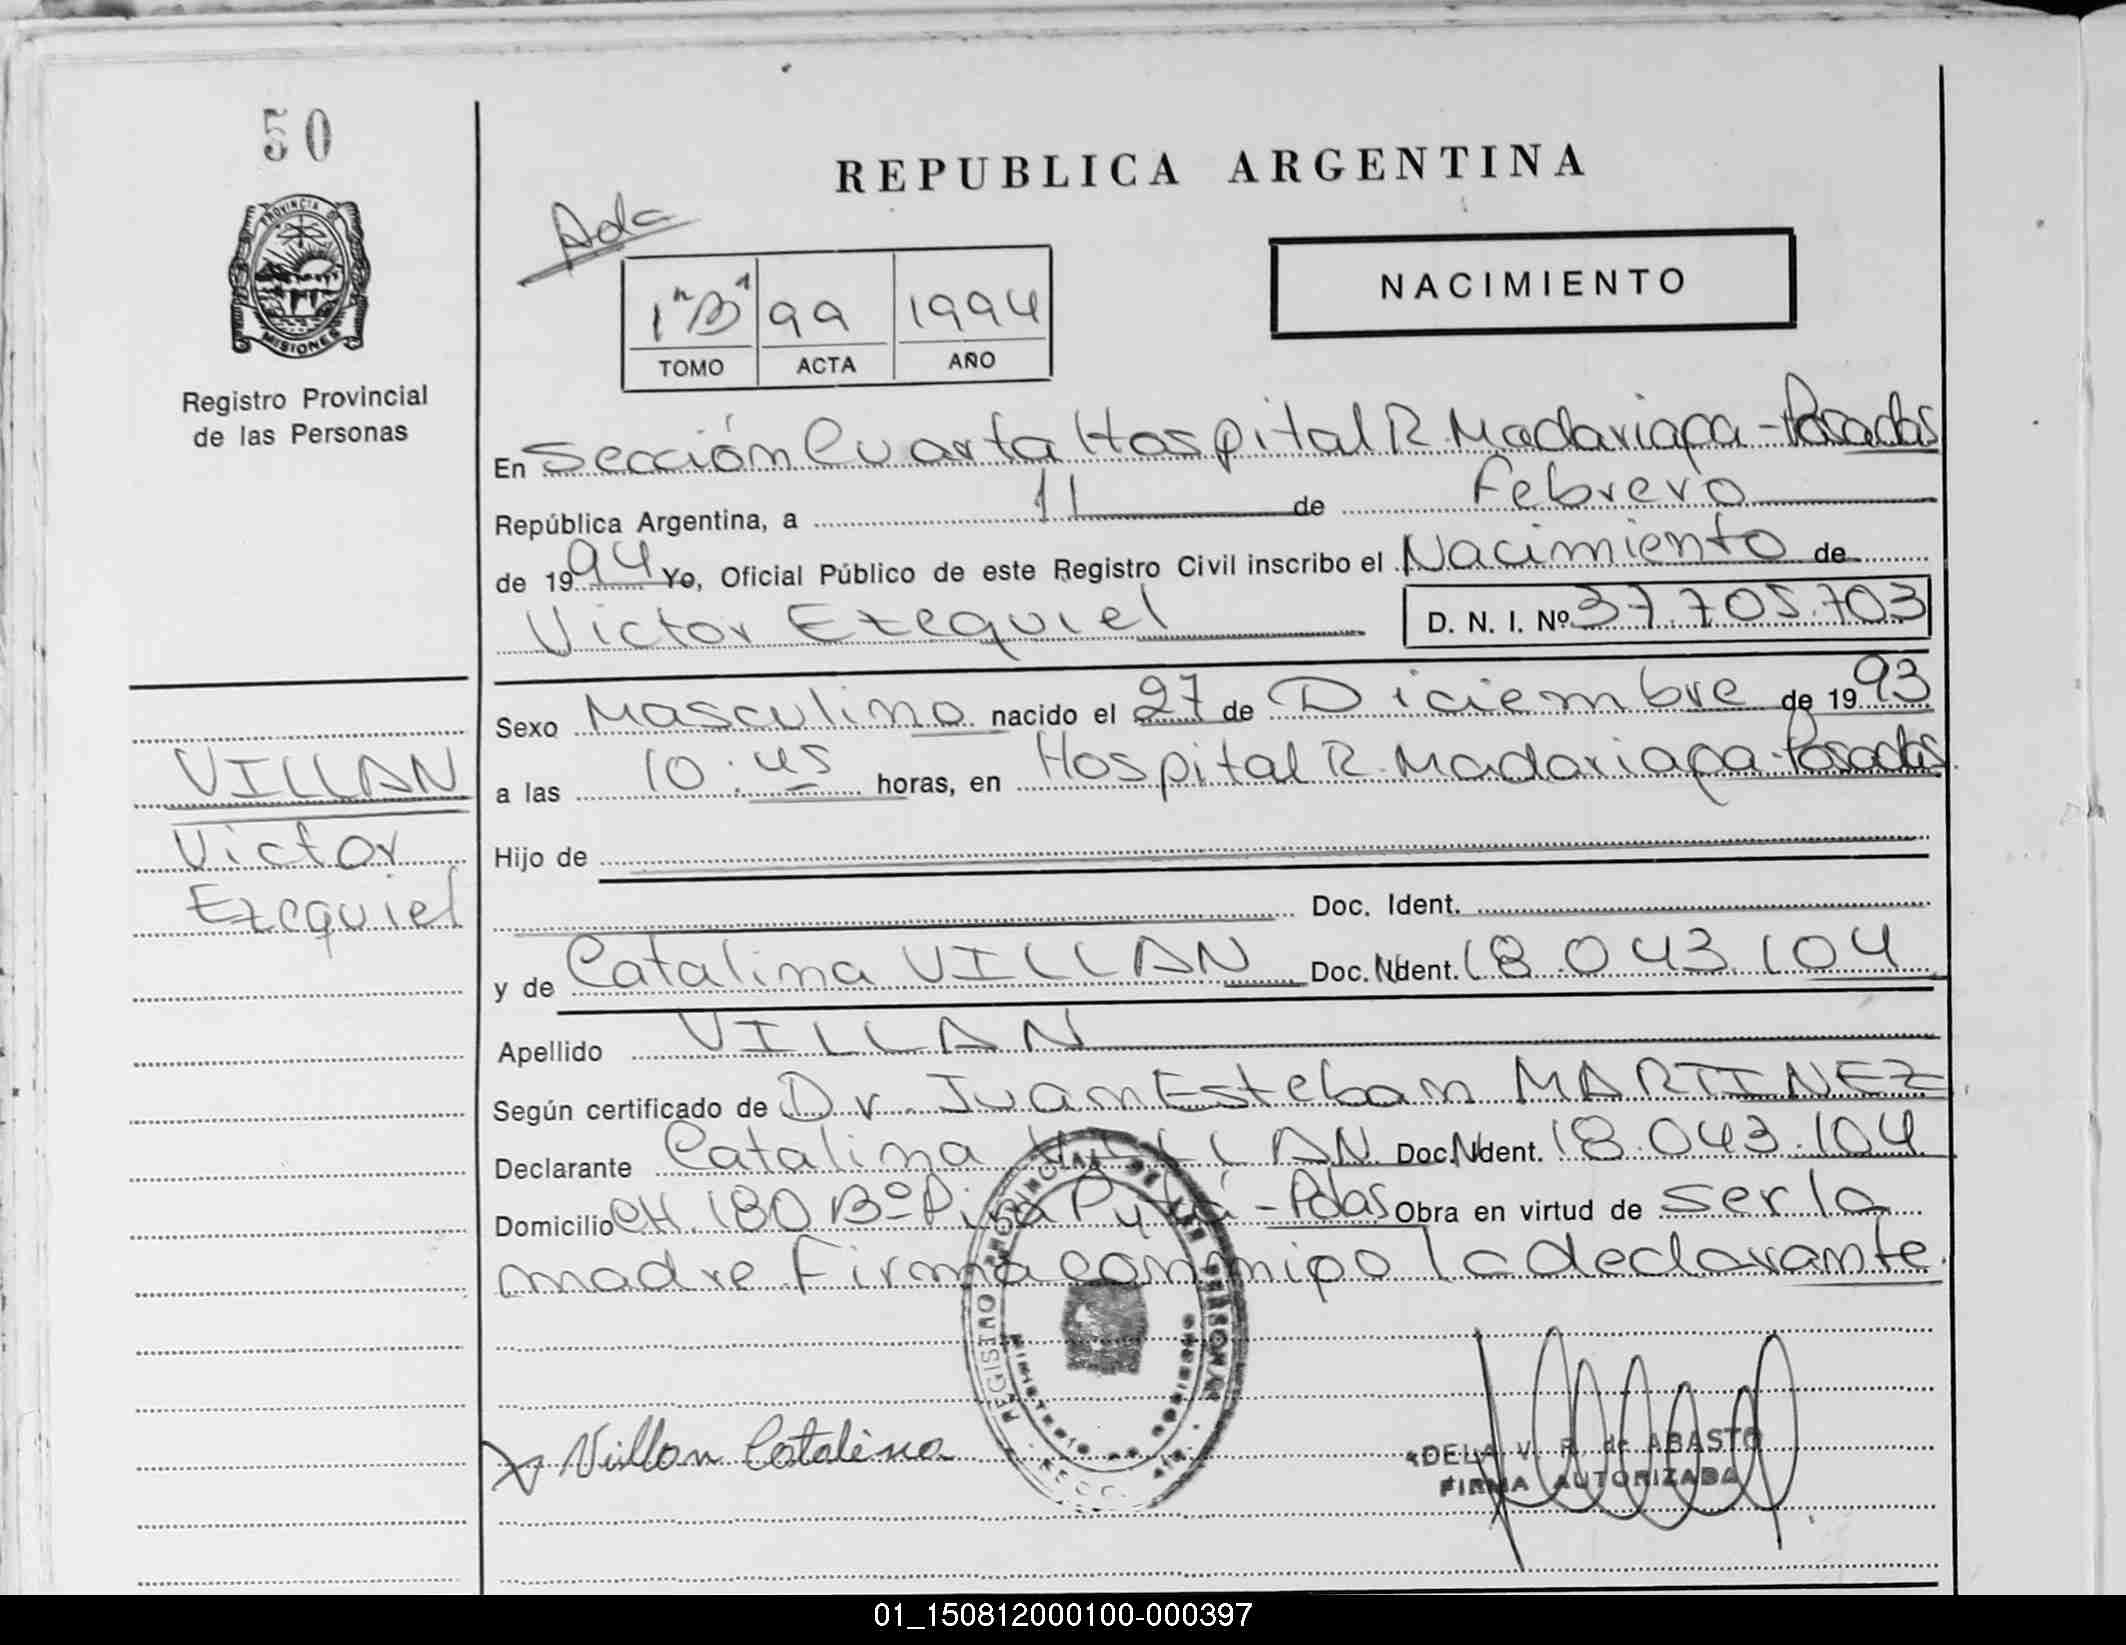 50
PROVINCIA DE
MISIONES
Registro Provincial
de las Personas
REPUBLICA ARGENTINA
Ada
NACIMIENTO
1"B" 99 1994
TOMO ACTA AÑO
En Sección Cuarta Hospital R. Madariaga - Posadas
República Argentina, a 11 de Febrero
de 1994 Yo, Oficial Público de este Registro Civil inscribo el Nacimiento de
Victor Ezequiel D. N. I. Nº 37.705.703
Sexo Masculino nacido el 27 de Diciembre de 1993
a las 10:45 horas, en Hospital R. Madariaga - Posadas
Hijo de
Doc. Ident.
y de Catalina VILLAN Doc. Ident. 18.043.104
Apellido VILLAN
Según certificado de Dr. Juan Esteban MARTINEZ
Declarante Catalina VILLAN Doc. Ident. 18.043.104
Domicilio CH. 180 Bº Pdas Obra en virtud de ser la
madre firma conmigo la declarante.
VILLAN
Victor
Ezequiel
Villan Catalina
REGISTRO PROVINCIAL DE LAS PERSONAS
ADELA V. R. de ABASTO
FIRMA AUTORIZADA
01_150812000100-000397